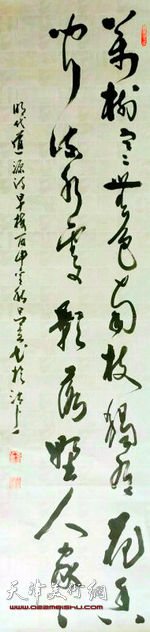 萬樹寒無色南枝獨有花香
聞流水處影落野人家
明代道源詩早梅
天津美术网
www.022meishu.com